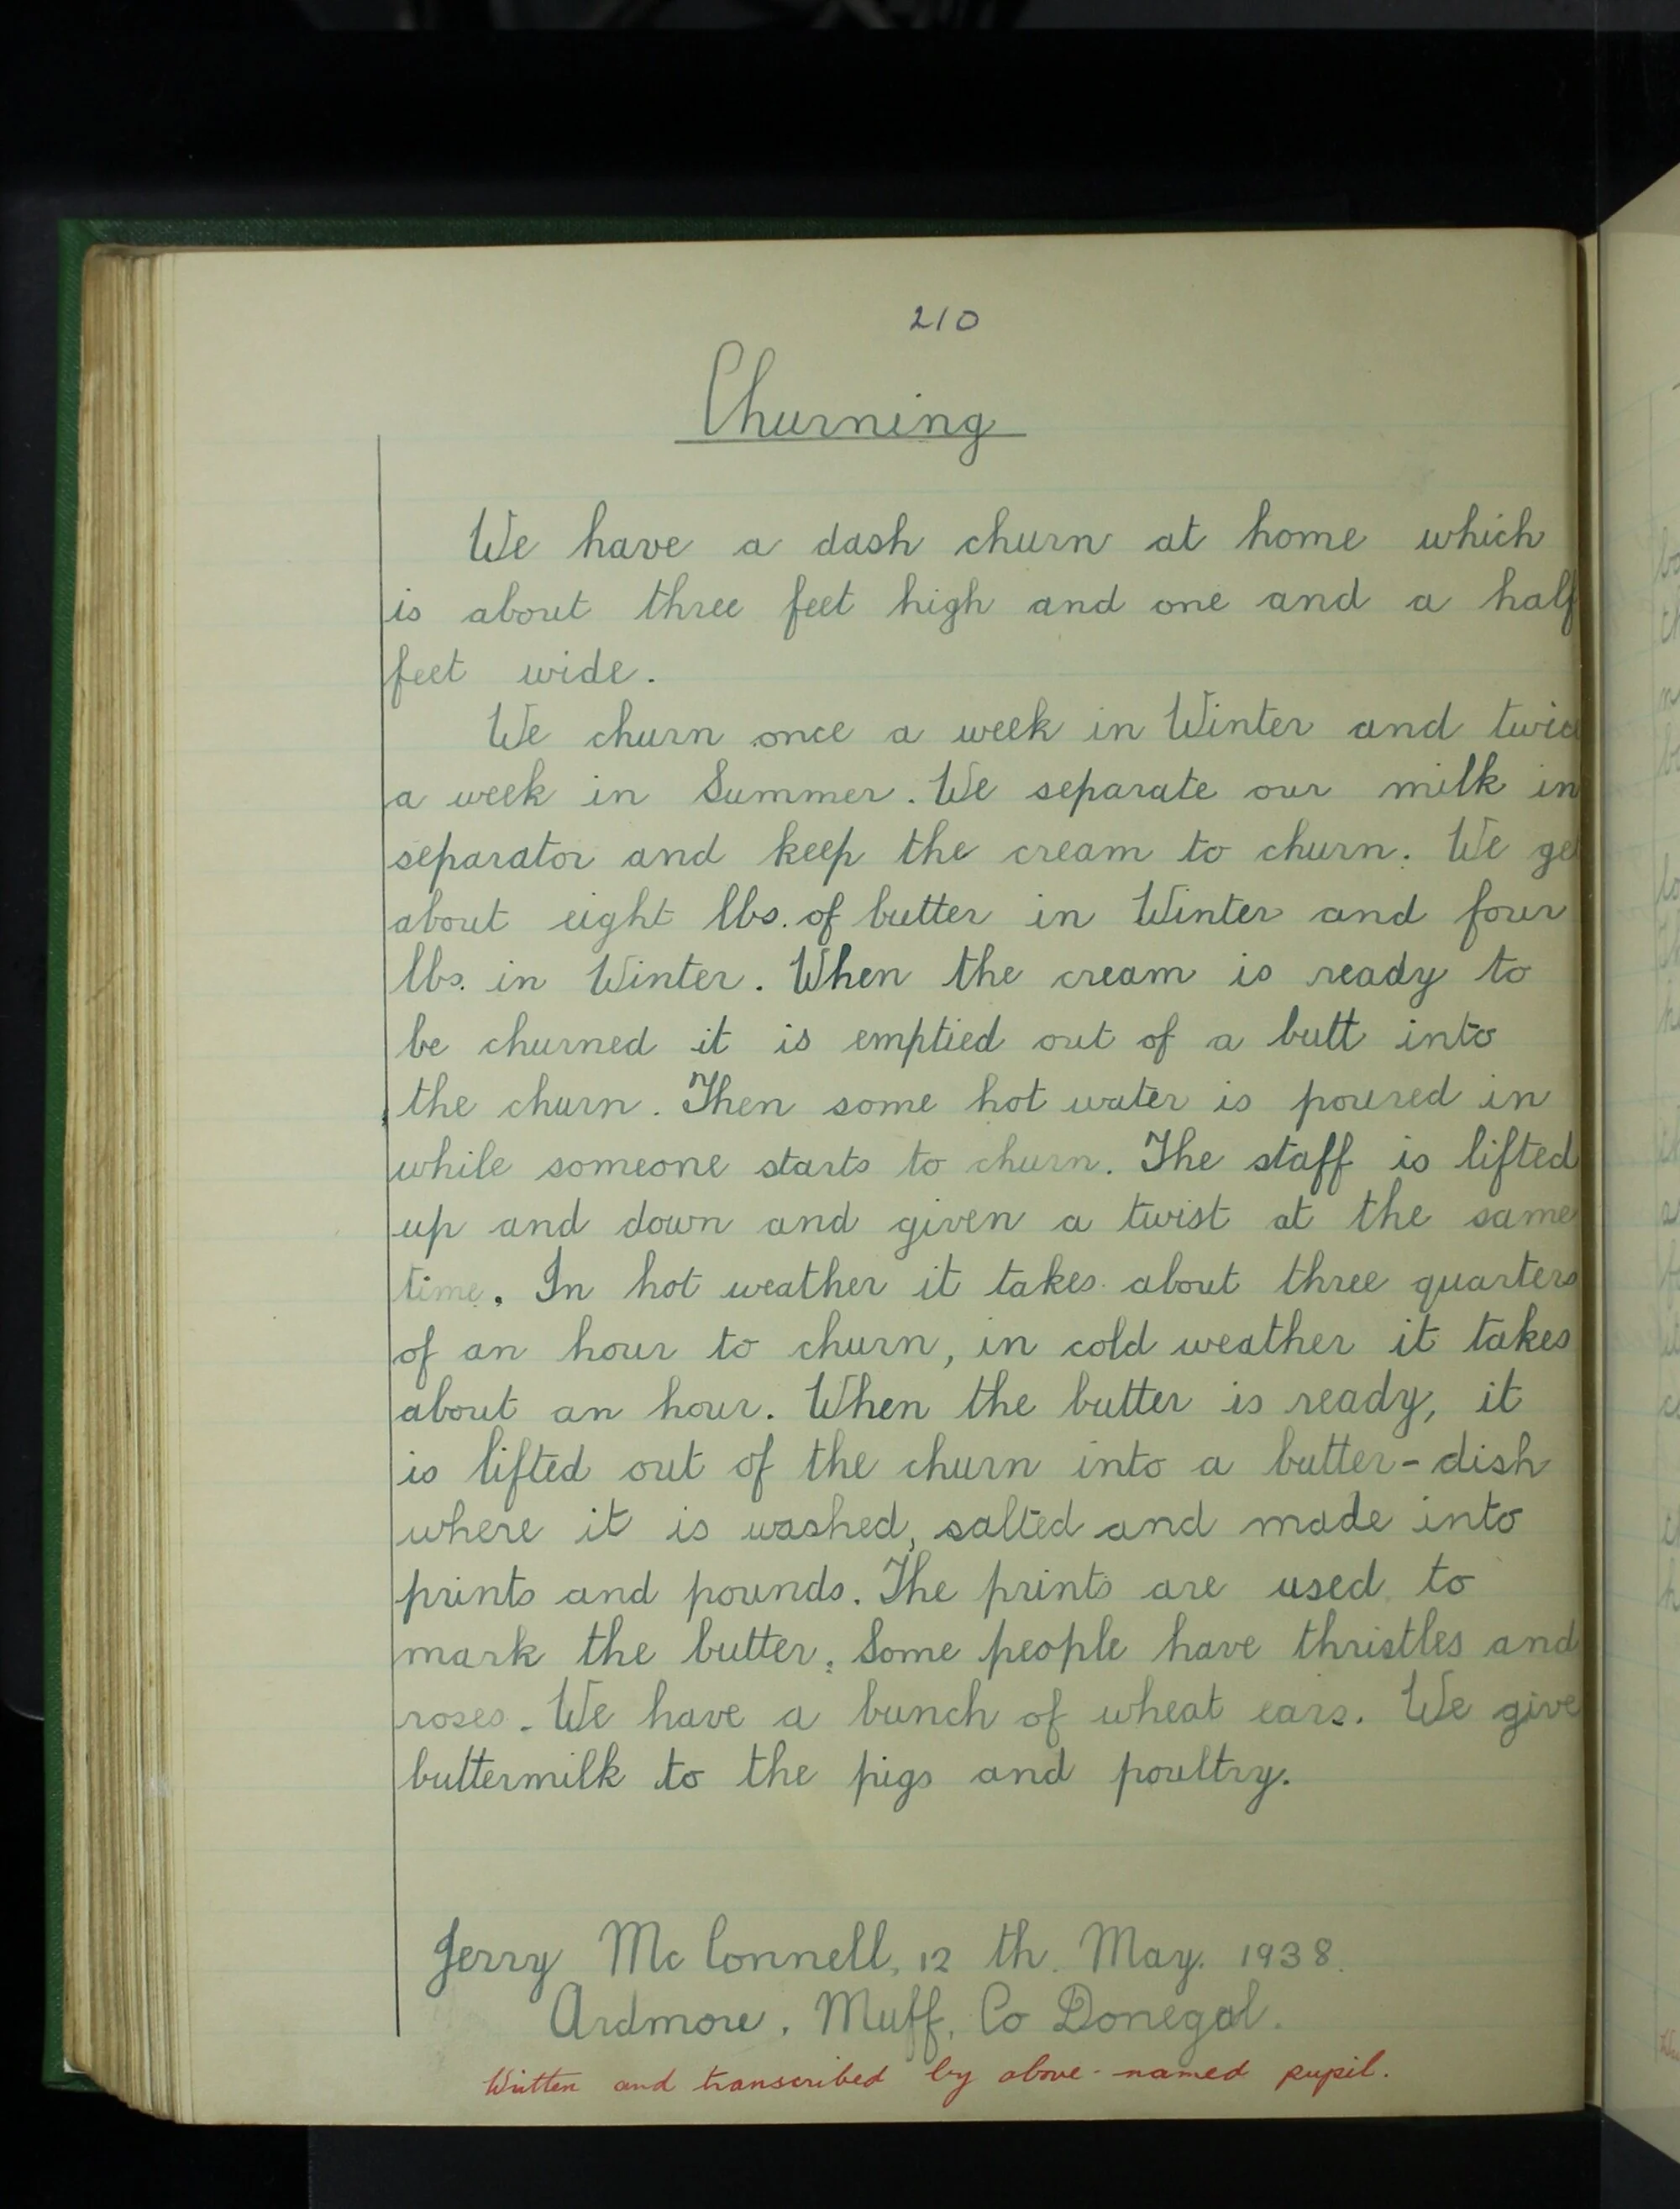 210
Churning
We have a dash churn at home which
is about three feet high and one and a half
feet wide.
We churn once a week in Winter and twic
a week in Summer. We separate our milk in
separator and keep the cream to churn. We ge
about eight lbs. of butter in Winter and four
lbs. in Winter. When the cream is ready to
be churned it is emptied out of a butt into
the churn. Then some hot water is poured in
while someone starts to churn. The staff is lifted
up and down and given a twist at the same
time. In hot weather it takes about three quarters
of an hour to churn, in cold weather it takes
about an hour. When the butter is ready, it
is lifted out of the churn into a butter-dish
where it is washed, salted and made into
prints and pounds. The prints are used to
mark the butter. Some people have thristles and
roses. We have a bunch of wheat ears. We give
buttermilk to the pigs and poultry.
Jerry Mc Connell, 12 th. May. 1938.
Ardmore, Muff, Co Donegal.
Written and transcribed by above-named pupil.